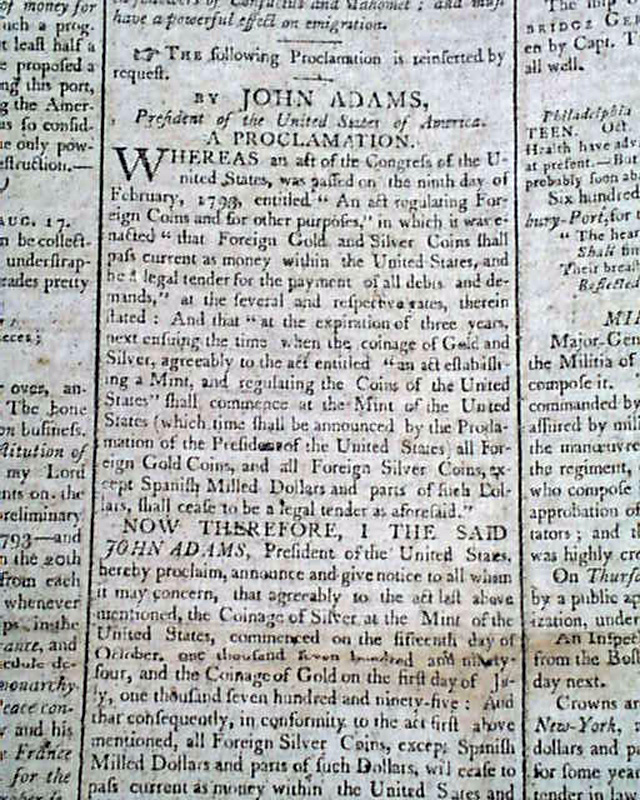 of money for
uch a prog-
t leaſt half a
e propoſed a
ng this port,
g the Amer-
as ſo conſid-
e only pow-
eſtruction.—
AUG. 17.
n be collect-
underſtrap-
rades pretty
eces;
over, an-
The bone
on buſineſs.
ſtitution of
my Lord
nts on the
reliminary
793—and
n the 20th
from each
whenever
ps in the
rance, and
edule de-
monarchy
Peace con-
y and his
France
for the
of Confucius and Mahomet ; and muſt
have a powerful effect on emigration.
☞ THE following Proclamation is reinſerted by
requeſt.
BY JOHN ADAMS,
Preſident of the United States of America.
A PROCLAMATION.
WHEREAS an act of the Congreſs of the U-
nited States, was paſſed on the ninth day of
February, 1793, entitled " An act regulating For-
eign Coins and for other purpoſes," in which it was e-
nacted " that Foreign Gold and Silver Coins ſhall
paſs current as money within the United States, and
be a legal tender for the payment of all debts and de-
mands," at the ſeveral and reſpective rates, therein
ſtated : And that " at the expiration of three years,
next enſuing the time when the coinage of Gold and
Silver, agreeably to the act entitled "an act eſtabliſh-
ing a Mint, and regulating the Coins of the United
States" ſhall commence at the Mint of the United
States (which time ſhall be announced by the Procla-
mation of the Preſident of the United States) all For-
eign Gold Coins, and all Foreign Silver Coins, ex-
cept Spaniſh Milled Dollars and parts of ſuch Dol-
lars, ſhall ceaſe to be a legal tender as aforeſaid."
NOW THEREFORE, I THE SAID
JOHN ADAMS, Preſident of the United States,
hereby proclaim, announce and give notice to all whom
it may concern, that agreeably to the act laſt above
mentioned, the Coinage of Silver at the Mint of the
United States, commenced on the fifteenth day of
October, one thouſand ſeven hundred and ninety-
four, and the Coinage of Gold on the firſt day of Ju-
ly, one thouſand ſeven hundred and ninety-five : And
that conſequently, in conformity to the act firſt above
mentioned, all Foreign Silver Coins, except Spaniſh
Milled Dollars and parts of ſuch Dollars, will ceaſe to
paſs current as money within the United States and
The ſhip
BRIDGE GE
en by Capt. T
all well.
Philadelphia
TEEN. Oct.
Health have adv
at preſent.—But
probably ſoon ab
Six hundred
bury-Port, for
" The hear
Shall
Their brea
Reflected
MI
Major-Gen
the Militia of
compoſe it.
commanded by
aſſured by mili
the manœuvre
the regiment,
who compoſe
approbation of
tators ; and t
was highly cre
On Thurſ
by a public ap
ization, under
An Inſpe
from the Boſt
day next.
Crowns an
New-York,
dollars and p
for ſome year
tender in law